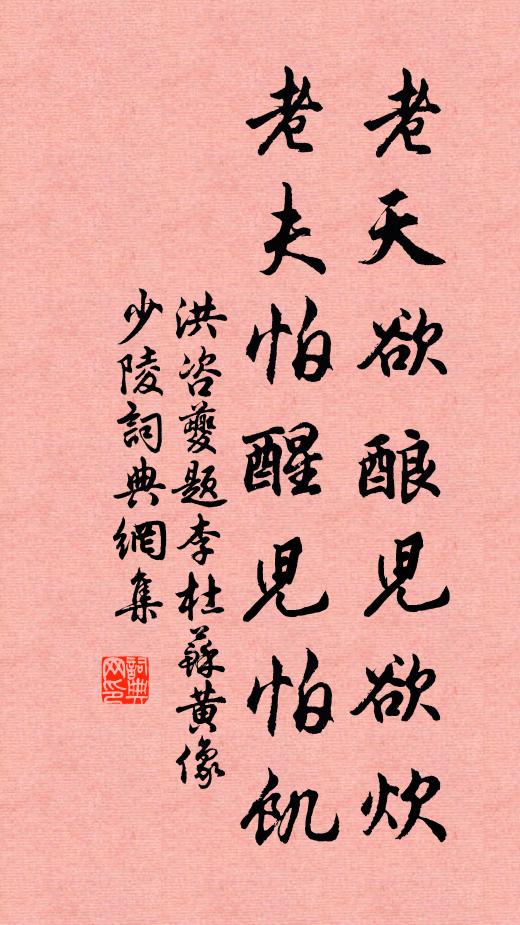 老天欲酿児欲炊
老夫怕醒児怕飢
洪咨夔题李杜蘇黄像
少陵詞典網集
詞典网印